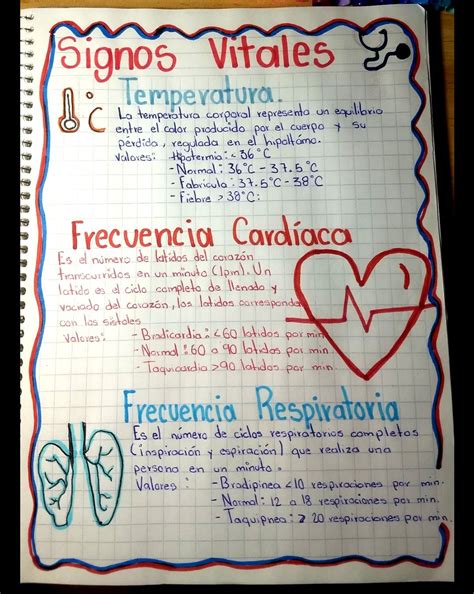 Signos Vitales
°C
Temperatura.
La temperatura corporal representa un equilibrio
entre el calor producido por el cuerpo y su
pérdida, regulada en el hipotálamo.
Valores: Hipotermia: < 36°C
- Normal: 36°C - 37.5°C
- Febrícula: 37.5°C - 38°C
- Fiebre > 38°C:
Frecuencia Cardíaca
Es el número de latidos del corazón
transcurridos en un minuto (lpm). Un
latido es el ciclo completo de llenado y
vaciado del corazón, los latidos corresponden
con las sístoles
Valores: - Bradicardia: < 60 latidos por min
- Normal: 60 a 90 latidos por min
- Taquicardia > 90 latidos por min.
Frecuencia Respiratoria
Es el número de ciclos respiratorios completos
(inspiración y espiración) que realiza una
persona en un minuto.
Valores: - Bradipinea < 10 respiraciones por min.
- Normal: 12 a 18 respiraciones por min.
- Taquipnea: ≥ 20 respiraciones por min.